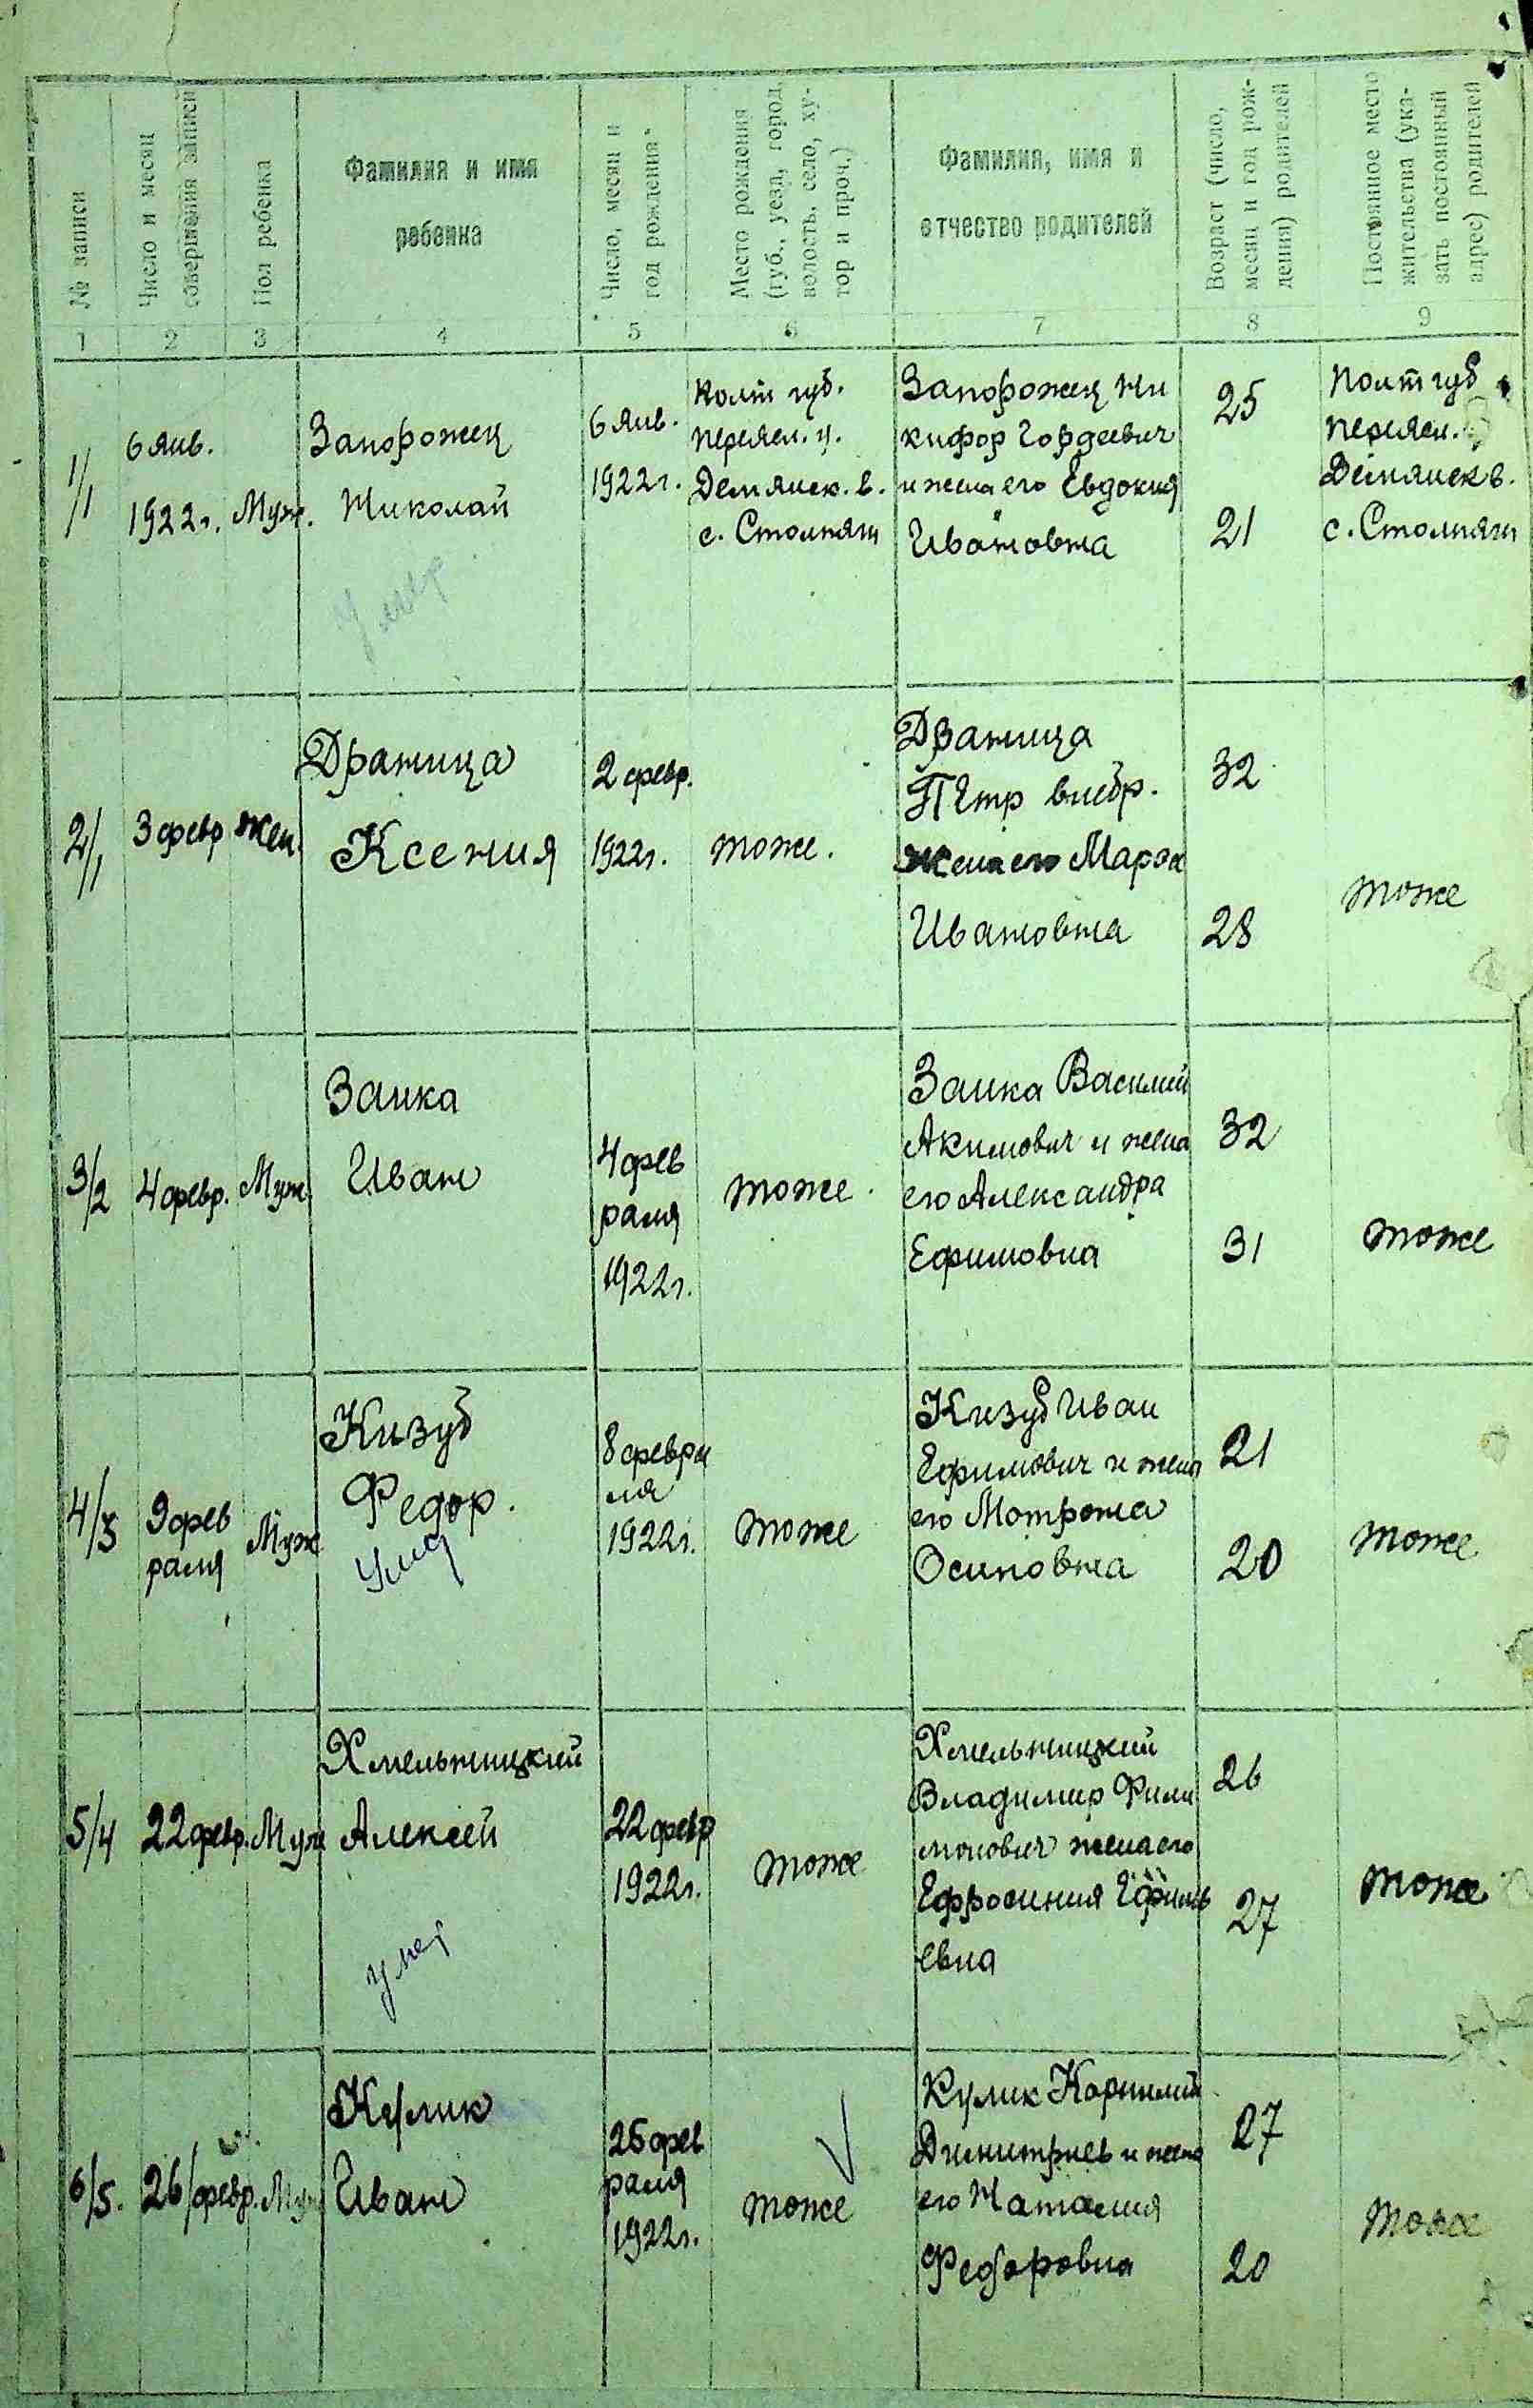 № записи
Число и месяц
совершения записи
Пол ребенка
Фамилия и имя
ребенка
Число, месяц и
год рождения
Место рождения
(губ., уезд, город,
волость, село, ху-
тор и проч.)
Фамилия, имя и
отчество родителей
Возраст (число,
месяц и год рож-
дения) родителей
Постоянное место
жительства (ука-
зать постоянный
адрес) родителей
1 2 3 4 5 6 7 8 9
1/1
6 янв.
1922г.
Муж.
Запорожец
Николай
Умер
6 янв.
1922г.
Полт губ.
Переясл. у.
Демянск. в.
с. Столпяги
Запорожец Ни
кифор Гордеевич
и жена его Евдокия
Ивановна
25
21
Полт губ
Переясл.
Демянск в.
с. Столпяги
2/1
3 февр
жен.
Драница
Ксения
2 февр.
1922г.
тоже.
Драница
Петр
жена его Марфа
Ивановна
32
28
тоже
3/2
4 февр.
Муж
Заика
Иван
4 фев
раля
1922г.
тоже.
Заика Василий
Акимович и жена
его Александра
Ефимовна
32
31
тоже
4/3
9 фев
раля
Муж
Кизуб
Федор.
8 февра
ля
1922г.
тоже
Кизуб Иван
Ефимович и жена
его Мотрона
Осиповна
21
20
тоже
5/4
22 февр.
Муж
Хмельницкий
Алексей
умер
22 февр
1922г.
тоже
Хмельницкий
Владимир Фили
монович жена его
Ефросиния
евна
26
27
тоже
6/5.
26 февр.
Муж
Кулик
Иван
25 фев
раля
1922г.
тоже
Кулик Корнилий
Димитриев и жена
его Наталия
Федоровна
27
20
тоже